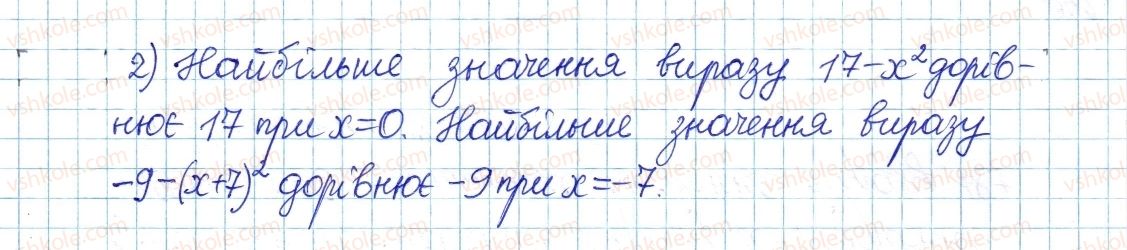 2) Найбільше значення виразу 17-x² дорів-
нює 17 при x=0. Найбільше значення виразу
-9-(x+7)² дорівнює -9 при x=-7.